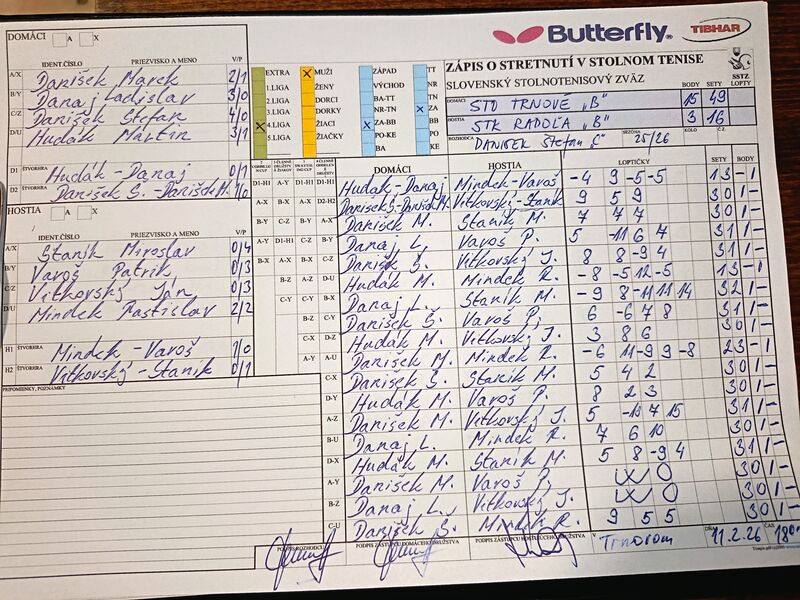 Butterfly
TIBHAR
DOMÁCI A X
IDENT.ČÍSLO PRIEZVISKO A MENO V/P
A/X Danišek Marek 2/1
B/Y Danaj Ladislav 3/0
C/Z Danišek Štefan 4/0
D/U Hudák Martin 3/1
D1 ŠTVORHRA Hudák - Danaj 0/1
D2 Danišek Š. - Danišek M. 1/0
HOSTIA A X
IDENT.ČÍSLO PRIEZVISKO A MENO V/P
A/X Staník Miroslav 0/4
B/Y Varoš Patrik 0/3
C/Z Vitkovský Ján 0/3
D/U Mindek Rastislav 2/2
H1 ŠTVORHRA Mindek - Varoš 1/0
H2 ŠTVORHRA Vitkovský - Staník 0/1
PRIPOMIENKY, POZNÁMKY
EXTRA X MUŽI ZÁPAD TT
1.LIGA ŽENY VÝCHOD NR
2.LIGA DORCI BA-TT TN
3.LIGA DORKY NR-TN X ZA
X 4.LIGA ŽIACI X ZA-BB BB
5.LIGA ŽIAČKY PO-KE PO
BA KE
ZÁPIS O STRETNUTÍ V STOLNOM TENISE
SLOVENSKÝ STOLNOTENISOVÝ ZVÄZ
SSTZ
BODY SETY LOPTY
DOMÁCI STO TRNOVÉ „B" 15 49
HOSTIA STK RADOĽA „B" 3 16
ROZHODCA DANIŠEK Štefan SEZÓNA 25/26 KOLO Č.Z.
DOMÁCI HOSTIA LOPTIČKY SETY BODY
Hudák - Danaj Mindek - Varoš -4 9 -5 -5 1 3 - 1
Danišek Š. - Danišek M. Vitkovský - Staník 9 5 9 3 0 1 -
Danišek M. Staník M. 7 4 7 3 0 1 -
Danaj L. Varoš P. 5 -11 6 7 3 1 1 -
Danišek Š. Vitkovský J. 8 8 -9 4 3 1 1 -
Hudák M. Mindek R. -8 -5 12 -5 1 3 - 1
Danaj L. Staník M. -9 8 -11 11 14 3 2 1 -
Danišek Š. Varoš P. 6 -6 7 8 3 1 1 -
Hudák M. Vitkovský J. 3 8 6 3 0 1 -
Danišek M. Mindek R. -6 11 -9 9 -8 2 3 - 1
Danišek Š. Staník M. 5 4 2 3 0 1 -
Hudák M. Varoš P. 8 2 3 3 0 1 -
Danišek M. Vitkovský J. 5 -11 7 15 3 1 1 -
Danaj L. Mindek R. 7 6 10 3 0 1 -
Hudák M. Staník M. 5 8 -9 4 3 1 1 -
Danišek M. Varoš P. WO 3 0 1 -
Danaj L. Vitkovský J. WO 3 0 1 -
Danišek Š. Mindek R. 9 5 5 3 0 1 -
PODPIS ROZHODCU PODPIS ZÁSTUPCU DOMÁCEHO DRUŽSTVA PODPIS ZÁSTUPCU HOSŤUJÚCEHO DRUŽSTVA V Trnovom DŇA 11.2.26 ČAS 18:00